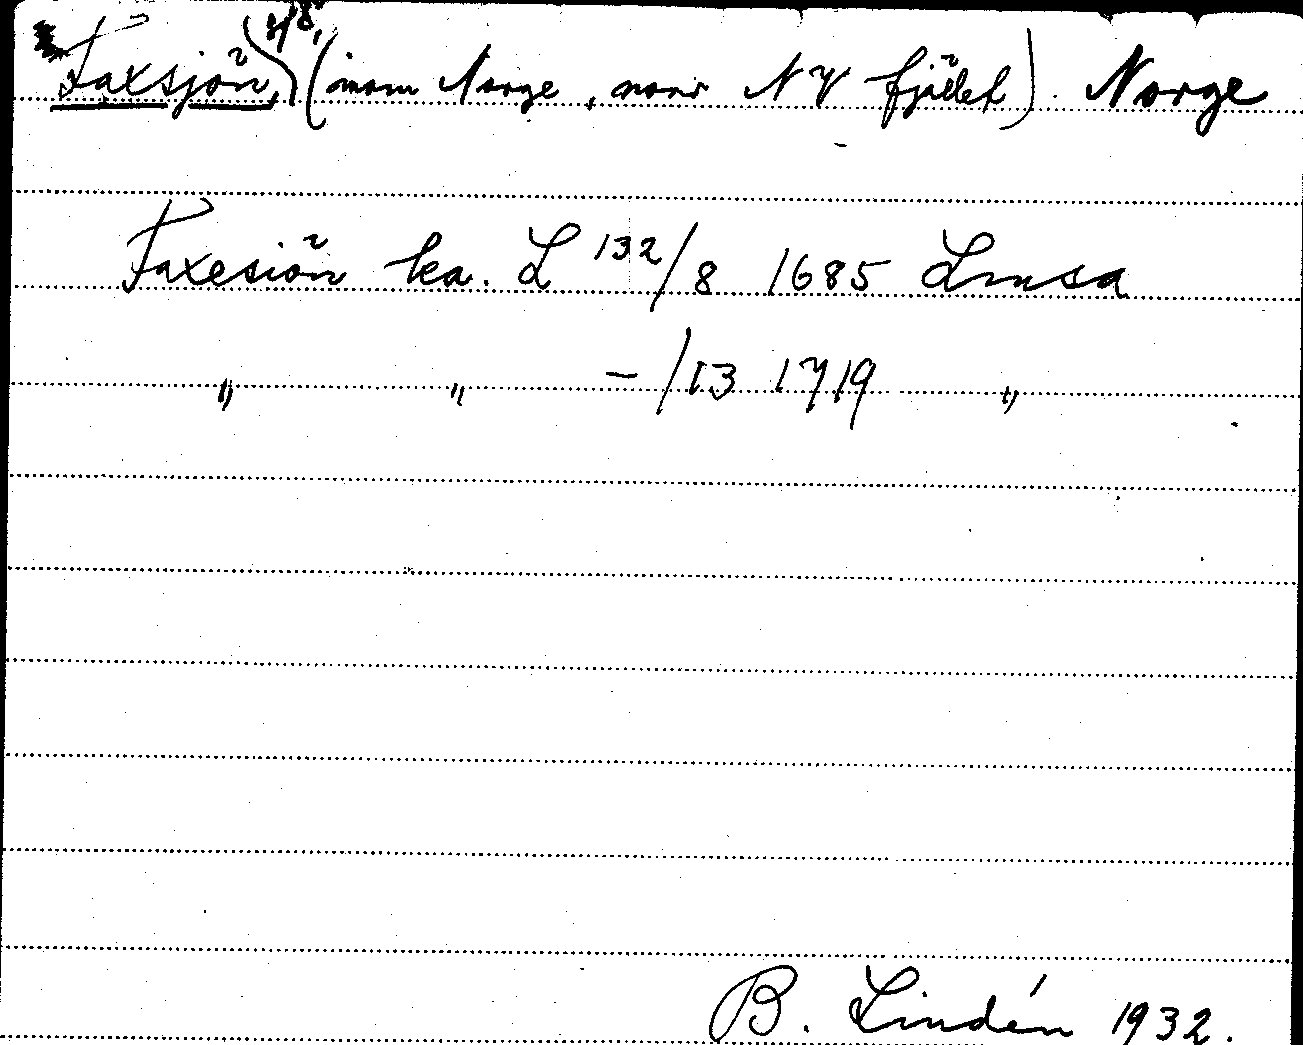 Faxsjön, sjö, (inom Norge, norr NV fjället). Norge
Faxesiön ka. L 132/8 1685 Lmsa
" " – /13 1719 "
B. Lindén 1932.